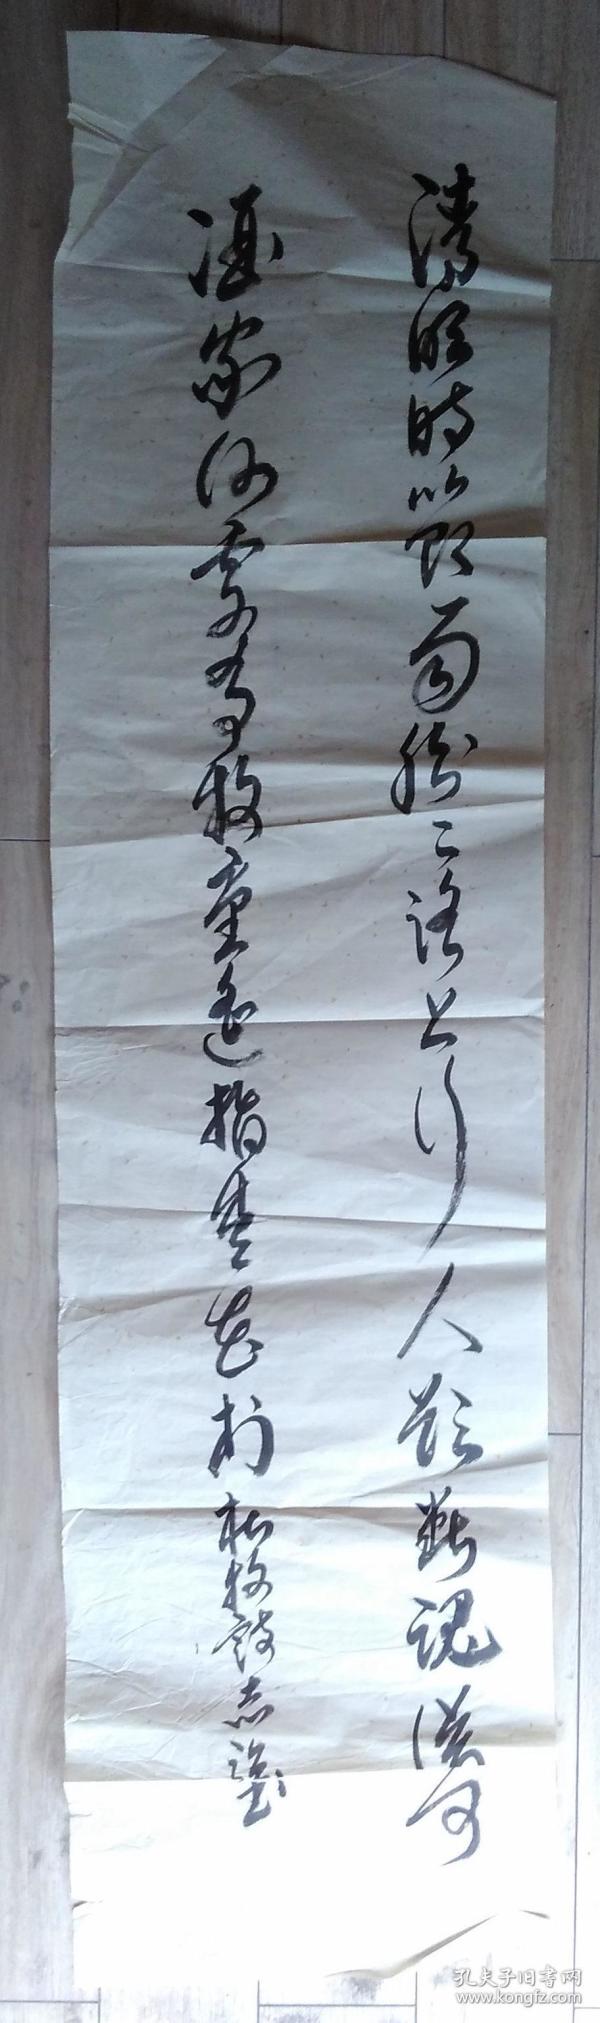 清明時節雨紛々路上行人欲斷魂借問
酒家何處有牧童遙指杏花村 杜牧詩志
孔夫子旧书网
www.kongfz.com